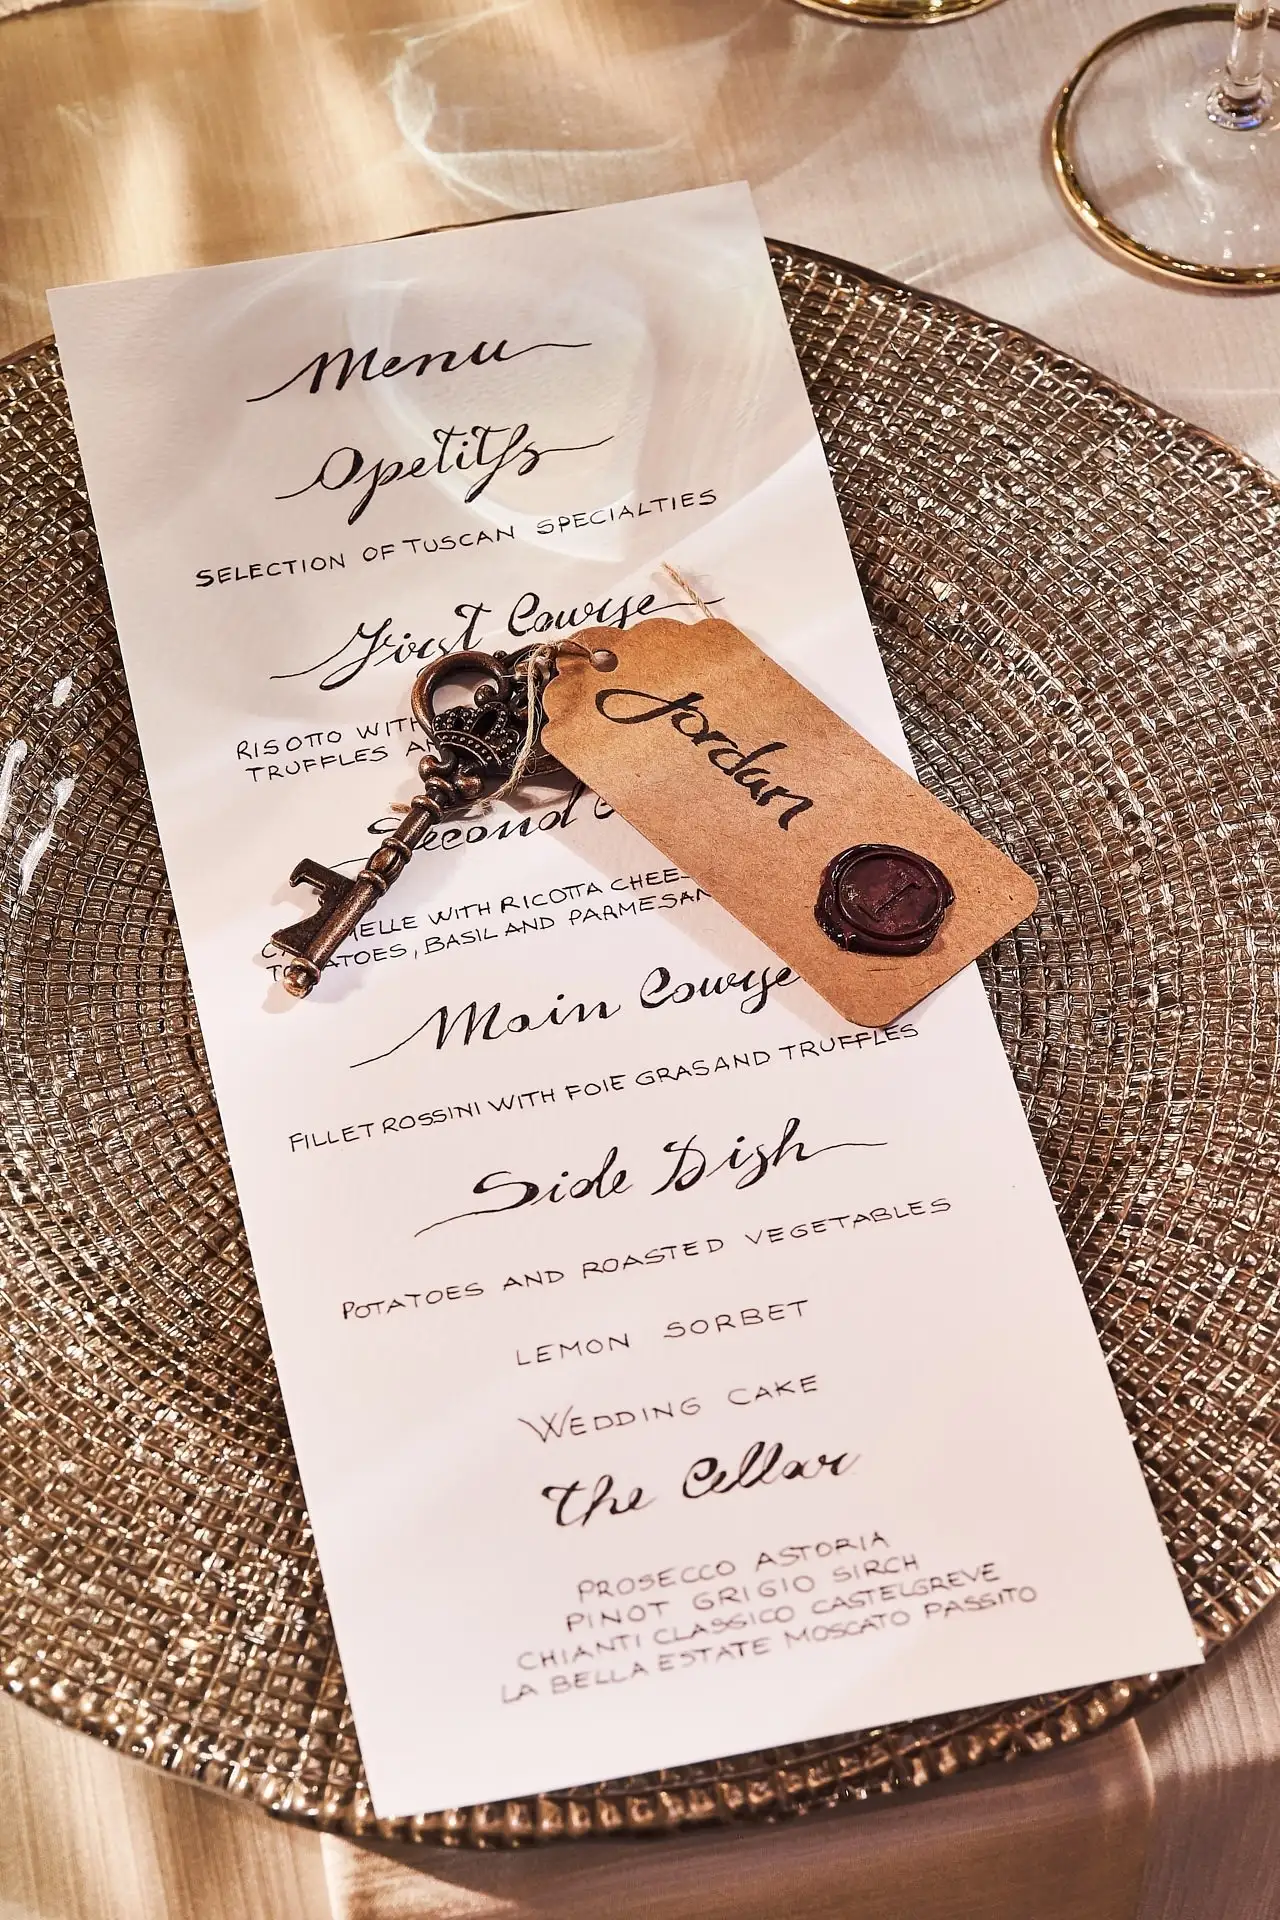 Menu
Apetitfs
SELECTION OF TUSCAN SPECIALTIES
First Course
RISOTTO WITH
TRUFFLES
Second
WITH RICOTTA
BASIL AND PARMESAN
Main Course
FILLET ROSSINI WITH FOIE GRAS AND TRUFFLES
Side Dish
POTATOES AND ROASTED VEGETABLES
LEMON SORBET
WEDDING CAKE
The Cellar
PROSECCO ASTORIA
PINOT GRIGIO SIRCH
CHIANTI CLASSICO CASTELGREVE
LA BELLA ESTATE MOSCATO PASSITO
Jordan